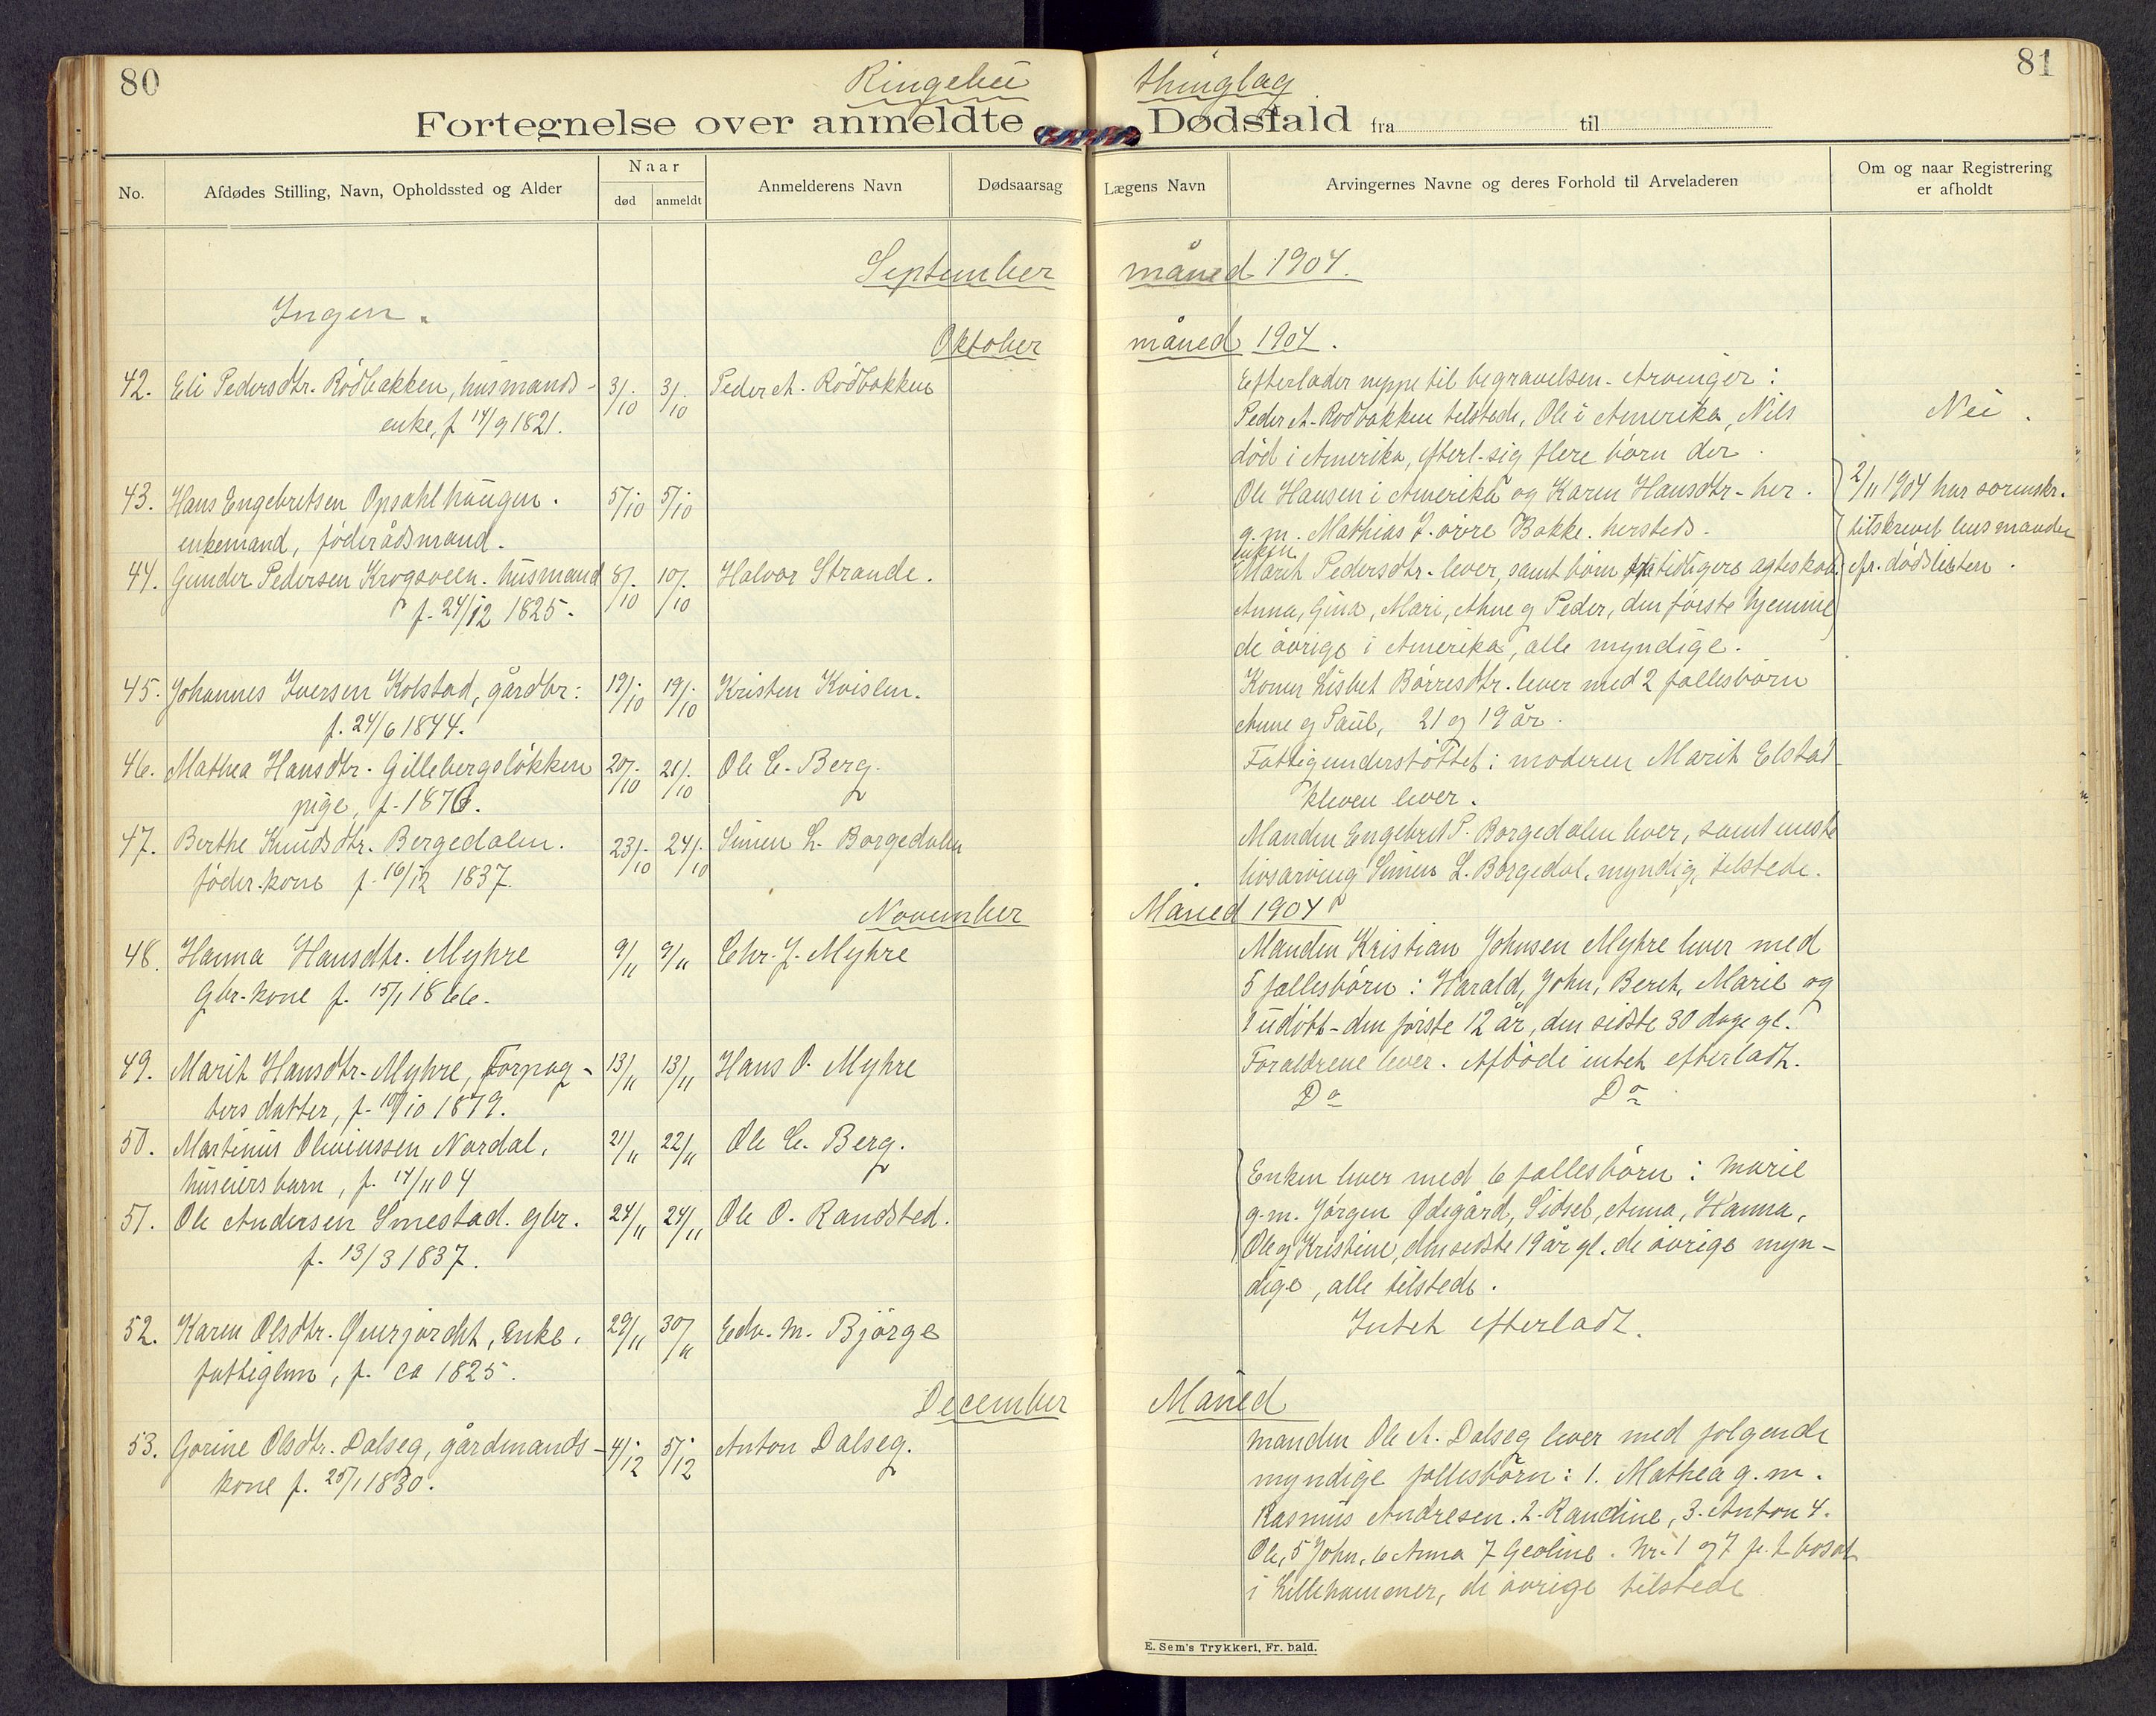 80
Ringebu
thinglag
81
Fortegnelse over anmeldte Dødsfald fra til
No.
Afdødes Stilling, Navn, Opholdssted og Alder
Naar
død
anmeldt
Anmelderens Navn
Dødsaarsag
Lægens Navn
Arvingernes Navne og deres Forhold til Arveladeren
Om og naar Registrering
er afholdt
September måned 1904.
Ingen.
Oktober måned 1904.
42. Eli Pedersdtr. Rödbakken, husmands- 3/10 3/10 Peder A. Rödbakken
enke, f 14/9 1821.
Efterlader neppe til begravelsen. Arvinger:
Peder A. Rodbakken tilstede, Ole i Amerika, Nils
död i Amerika, efterl. sig flere börn der.
Nei.
43. Hans Engebretsen Opsahlhaugen. 5/10 5/10
enkemand, föderådsmand.
Ole Hansen i Amerika og Karen Hansdtr. her.
g.m. Mathias J. övre Bakke. hersteds.
2/11 1904 har sorenskr.
tilskrevet lensmanden
44. Gunder Pedersen Krogsveen. husmand 8/10 10/10 Halvor Strande.
f. 24/12 1825.
enken
Marit Pedersdtr. lever, samt börn fra tidligere ægteskab:
Anna, Gina, Mari, Ahne og Peder, den förste hjemme
de övrige i Amerika, alle myndige.
efr. dödslisten.
45. Johannes Iversen Kolstad, gårdbr: 19/10 19/10 Kristen Kvislen.
f. 24/6 1844.
Konen Lisbet Börresdtr. lever med 2 fællesbörn
Anne og Paul, 21 og 19 år.
46. Mathea Hansdtr. Gillebergslökken 20/10 21/10 Ole C. Berg.
pige, f. 1876.
Fattigunderstöttet: moderen Marit Elstad-
kleven lever.
47. Berthe Knudsdtr. Bergedalen. 23/10 24/10 Simen L. Borgedalen
föder.kone f. 16/12 1837.
Manden Engebret P. Borgedalen lever, samt eneste
livsarving Simen L. Borgedal, myndig, tilstede.
November Måned 1904
48. Hanna Hansdtr. Myhre 9/11 9/11 Chr. J. Myhre
Gbr. kone f. 15/1 1866.
Manden Kristian Johnsen Myhre lever med
5 fællesbörn: Harald, John, Berit, Marie og
1 udöbt - den förste 12 år, den sidste 30 dage gl.
49. Marit Hansdtr. Myhre, Forpag- 13/11 13/11 Hans O. Myhre
ters datter, f. 10/10 1879.
Forældrene lever. Afdöde intet efterladt.
50. Martinus Olivinssen Nordal, 21/11 22/11 Ole C. Berg.
huseiers barn, f. 17/11 04
Do Do
51. Ole Andersen Smestad. gbr. 24/11 24/11 Ole O. Randsted.
f. 13/3 1837.
Enken lever med 6 fællesbörn: Marie
g.m. Jörgen Ødegård, Sidsel, Anna, Hanna,
Ole og Kristine, den sidste 19 år gl. de övrige myn-
dige, alle tilstede.
52. Karen Olsdtr. Gunrjordet, Enke, 29/11 30/11 Edv. M. Björge
fattiglem, f. ca 1825.
Intet efterladt.
December Måned
53. Gorine Olsdtr. Dalseg, gårdmands- 4/12 5/12 Anton Dalseg.
kone f. 25/1 1830.
Manden Ole A. Dalseg lever med folgende
myndige fællesbörn: 1. Mathea g.m.
Rasmus Andresen. 2. Randine, 3. Anton 4.
Ole, 5 John, 6 Anna 7 Geoline. Nr. 1 og 7 p. t. bosat
i Lillehammer, de övrige tilstede
E. Sem's Trykkeri, Fr. hald.